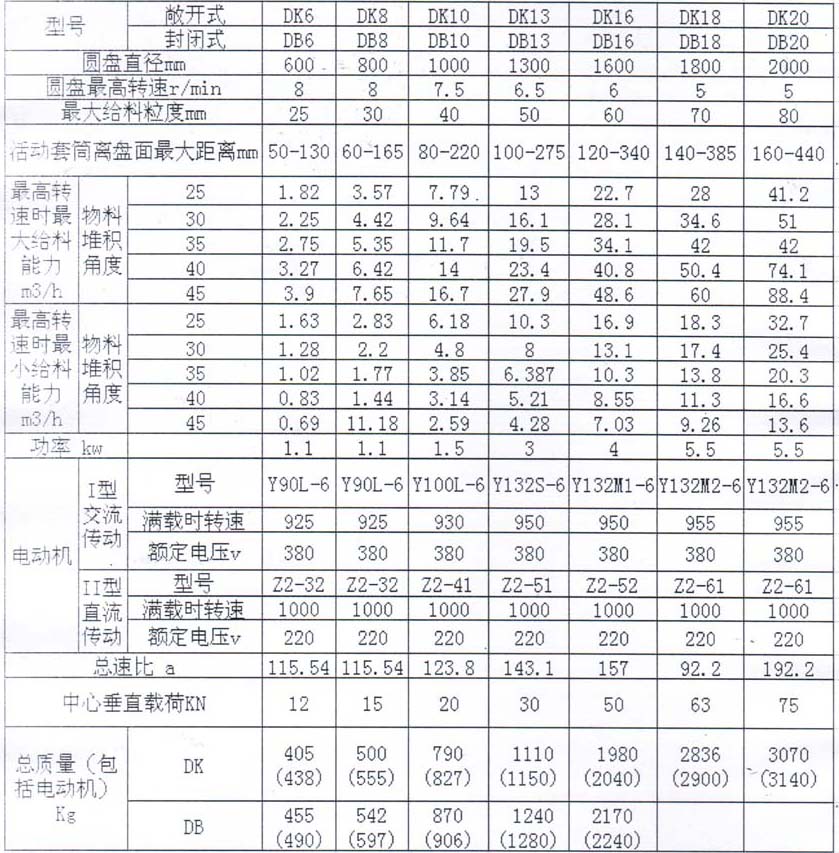 型号 敞开式 DK6 DK8 DK10 DK13 DK16 DK18 DK20
封闭式 DB6 DB8 DB10 DB13 DB16 DB18 DB20
圆盘直径mm 600 800 1000 1300 1600 1800 2000
圆盘最高转速r/min 8 8 7.5 6.5 6 5 5
最大给料粒度mm 25 30 40 50 60 70 80
活动套筒离盘面最大距离mm 50-130 60-165 80-220 100-275 120-340 140-385 160-440
最高转速时最大给料能力m3/h 物料堆积角度 25 1.82 3.57 7.79 13 22.7 28 41.2
30 2.25 4.42 9.64 16.1 28.1 34.6 51
35 2.75 5.35 11.7 19.5 34.1 42 42
40 3.27 6.42 14 23.4 40.8 50.4 74.1
45 3.9 7.65 16.7 27.9 48.6 60 88.4
最高转速时最小给料能力m3/h 物料堆积角度 25 1.63 2.83 6.18 10.3 16.9 18.3 32.7
30 1.28 2.2 4.8 8 13.1 17.4 25.4
35 1.02 1.77 3.85 6.387 10.3 13.8 20.3
40 0.83 1.44 3.14 5.21 8.55 11.3 16.6
45 0.69 11.18 2.59 4.28 7.03 9.26 13.6
功率 kw 1.1 1.1 1.5 3 4 5.5 5.5
电动机 I型交流传动 型号 Y90L-6 Y90L-6 Y100L-6 Y132S-6 Y132M1-6 Y132M2-6 Y132M2-6
满载时转速 925 925 930 950 950 955 955
额定电压v 380 380 380 380 380 380 380
II型直流传动 型号 Z2-32 Z2-32 Z2-41 Z2-51 Z2-52 Z2-61 Z2-61
满载时转速 1000 1000 1000 1000 1000 1000 1000
额定电压v 220 220 220 220 220 220 220
总速比 a 115.54 115.54 123.8 143.1 157 92.2 192.2
中心垂直载荷KN 12 15 20 30 50 63 75
总质量（包括电动机）Kg DK 405 500 790 1110 1980 2836 3070
(438) (555) (827) (1150) (2040) (2900) (3140)
DB 455 542 870 1240 2170
(490) (597) (906) (1280) (2240)